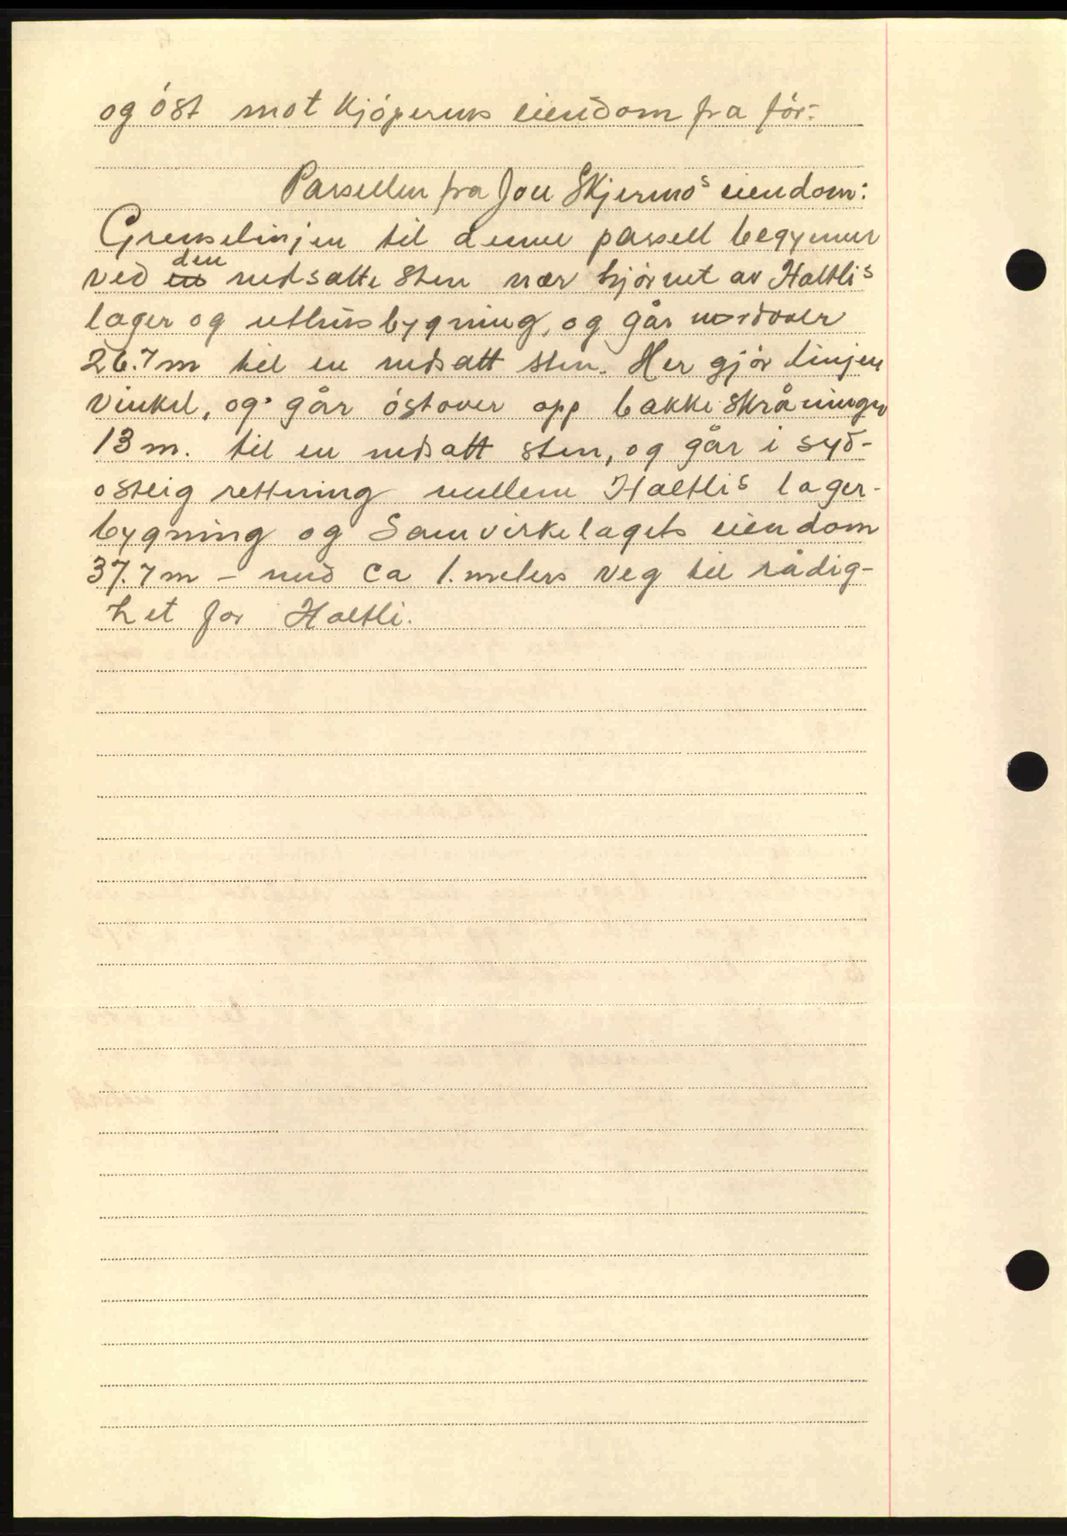 og öst mot kjöperens eiendom fra för.
Parsellen fra Jon Skjermos eiendom:
Grenselinjen til denne parsell begynner
ved den nedsatte sten nær hjörnet av Haltlis
lager og uthusbygning, og går nordover
26.7 m til en nedsatt sten. Her gjör linjen
vinkel, og går östover opp bakkeskråningen
13 m. til en nedsatt sten, og går i syd-
ostlig rettning mellem Haltlis lager-
bygning og Samvirkelagets eiendom
37.7 m – med ca 1. meters veg til rådig-
het for Haltli.